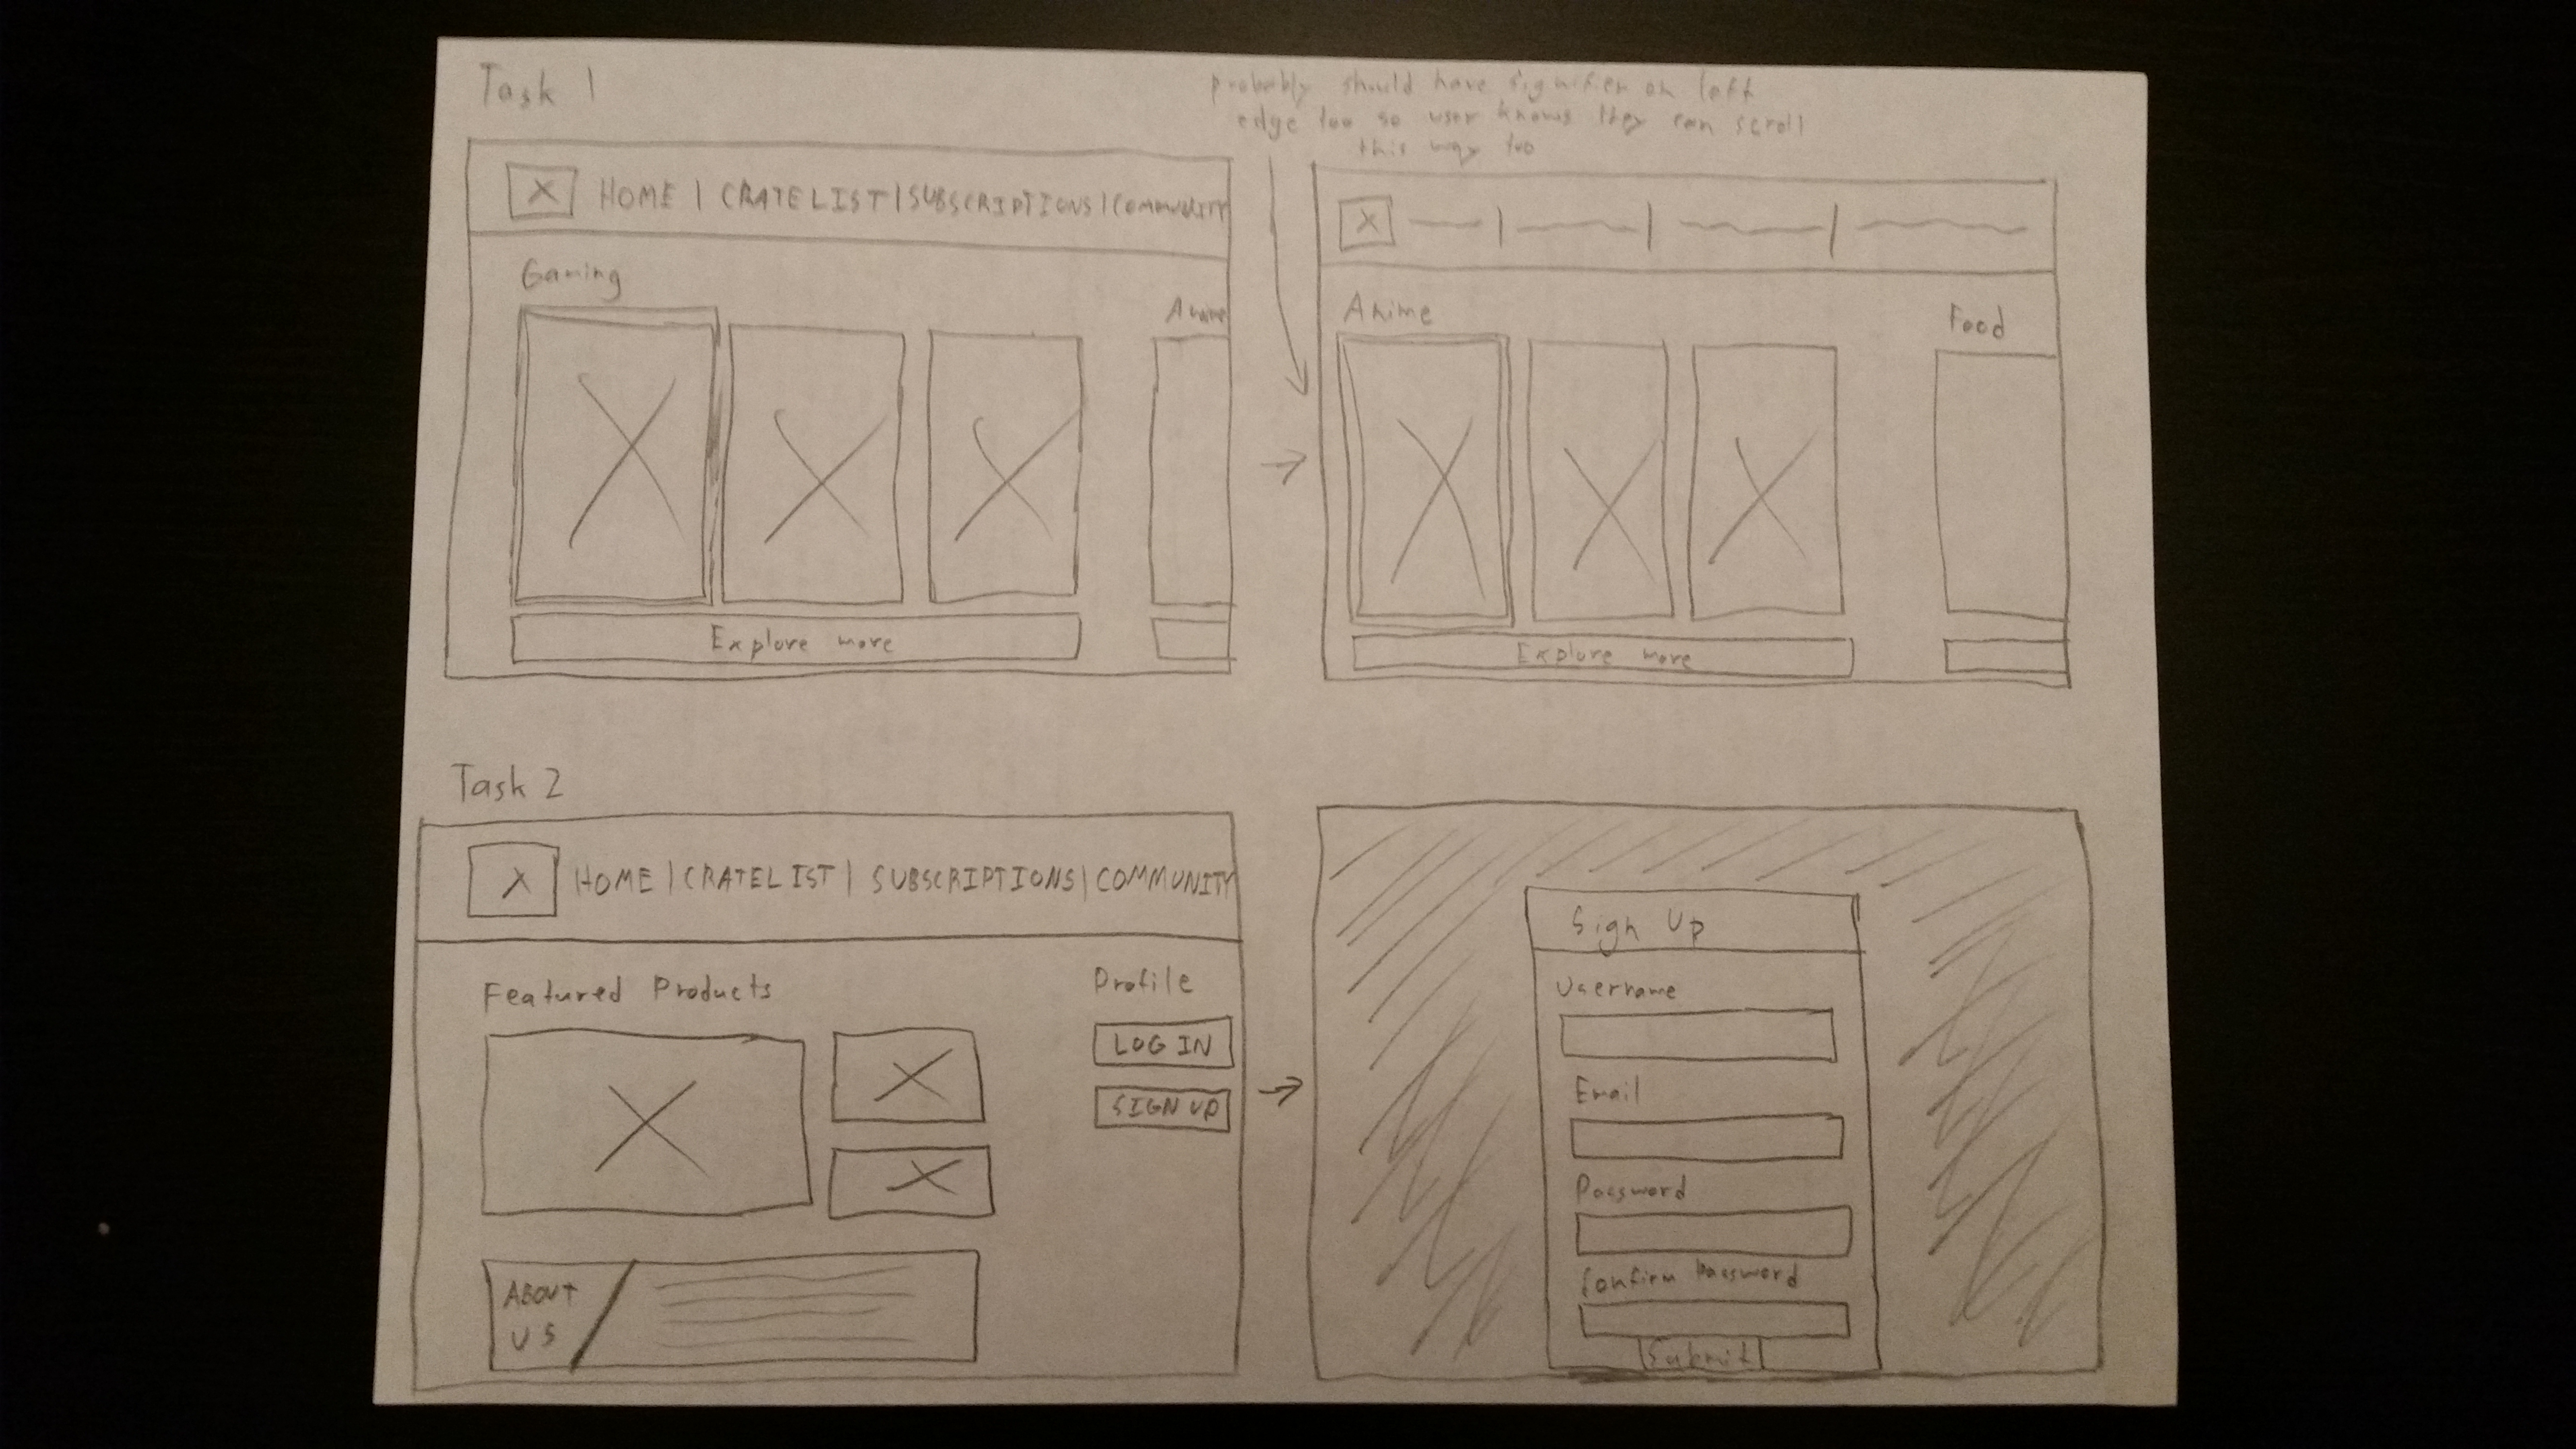 Task 1
probably should have signifier on left
edge too so user knows they can scroll
this way too
HOME | CRATELIST | SUBSCRIPTIONS | COMMUNITY
Gaming
Anime
Explore more
Anime
Food
Explore more
Task 2
HOME | CRATELIST | SUBSCRIPTIONS | COMMUNITY
Featured Products
Profile
LOG IN
SIGN UP
ABOUT
US
Sign Up
Username
Email
Password
Confirm Password
Submit